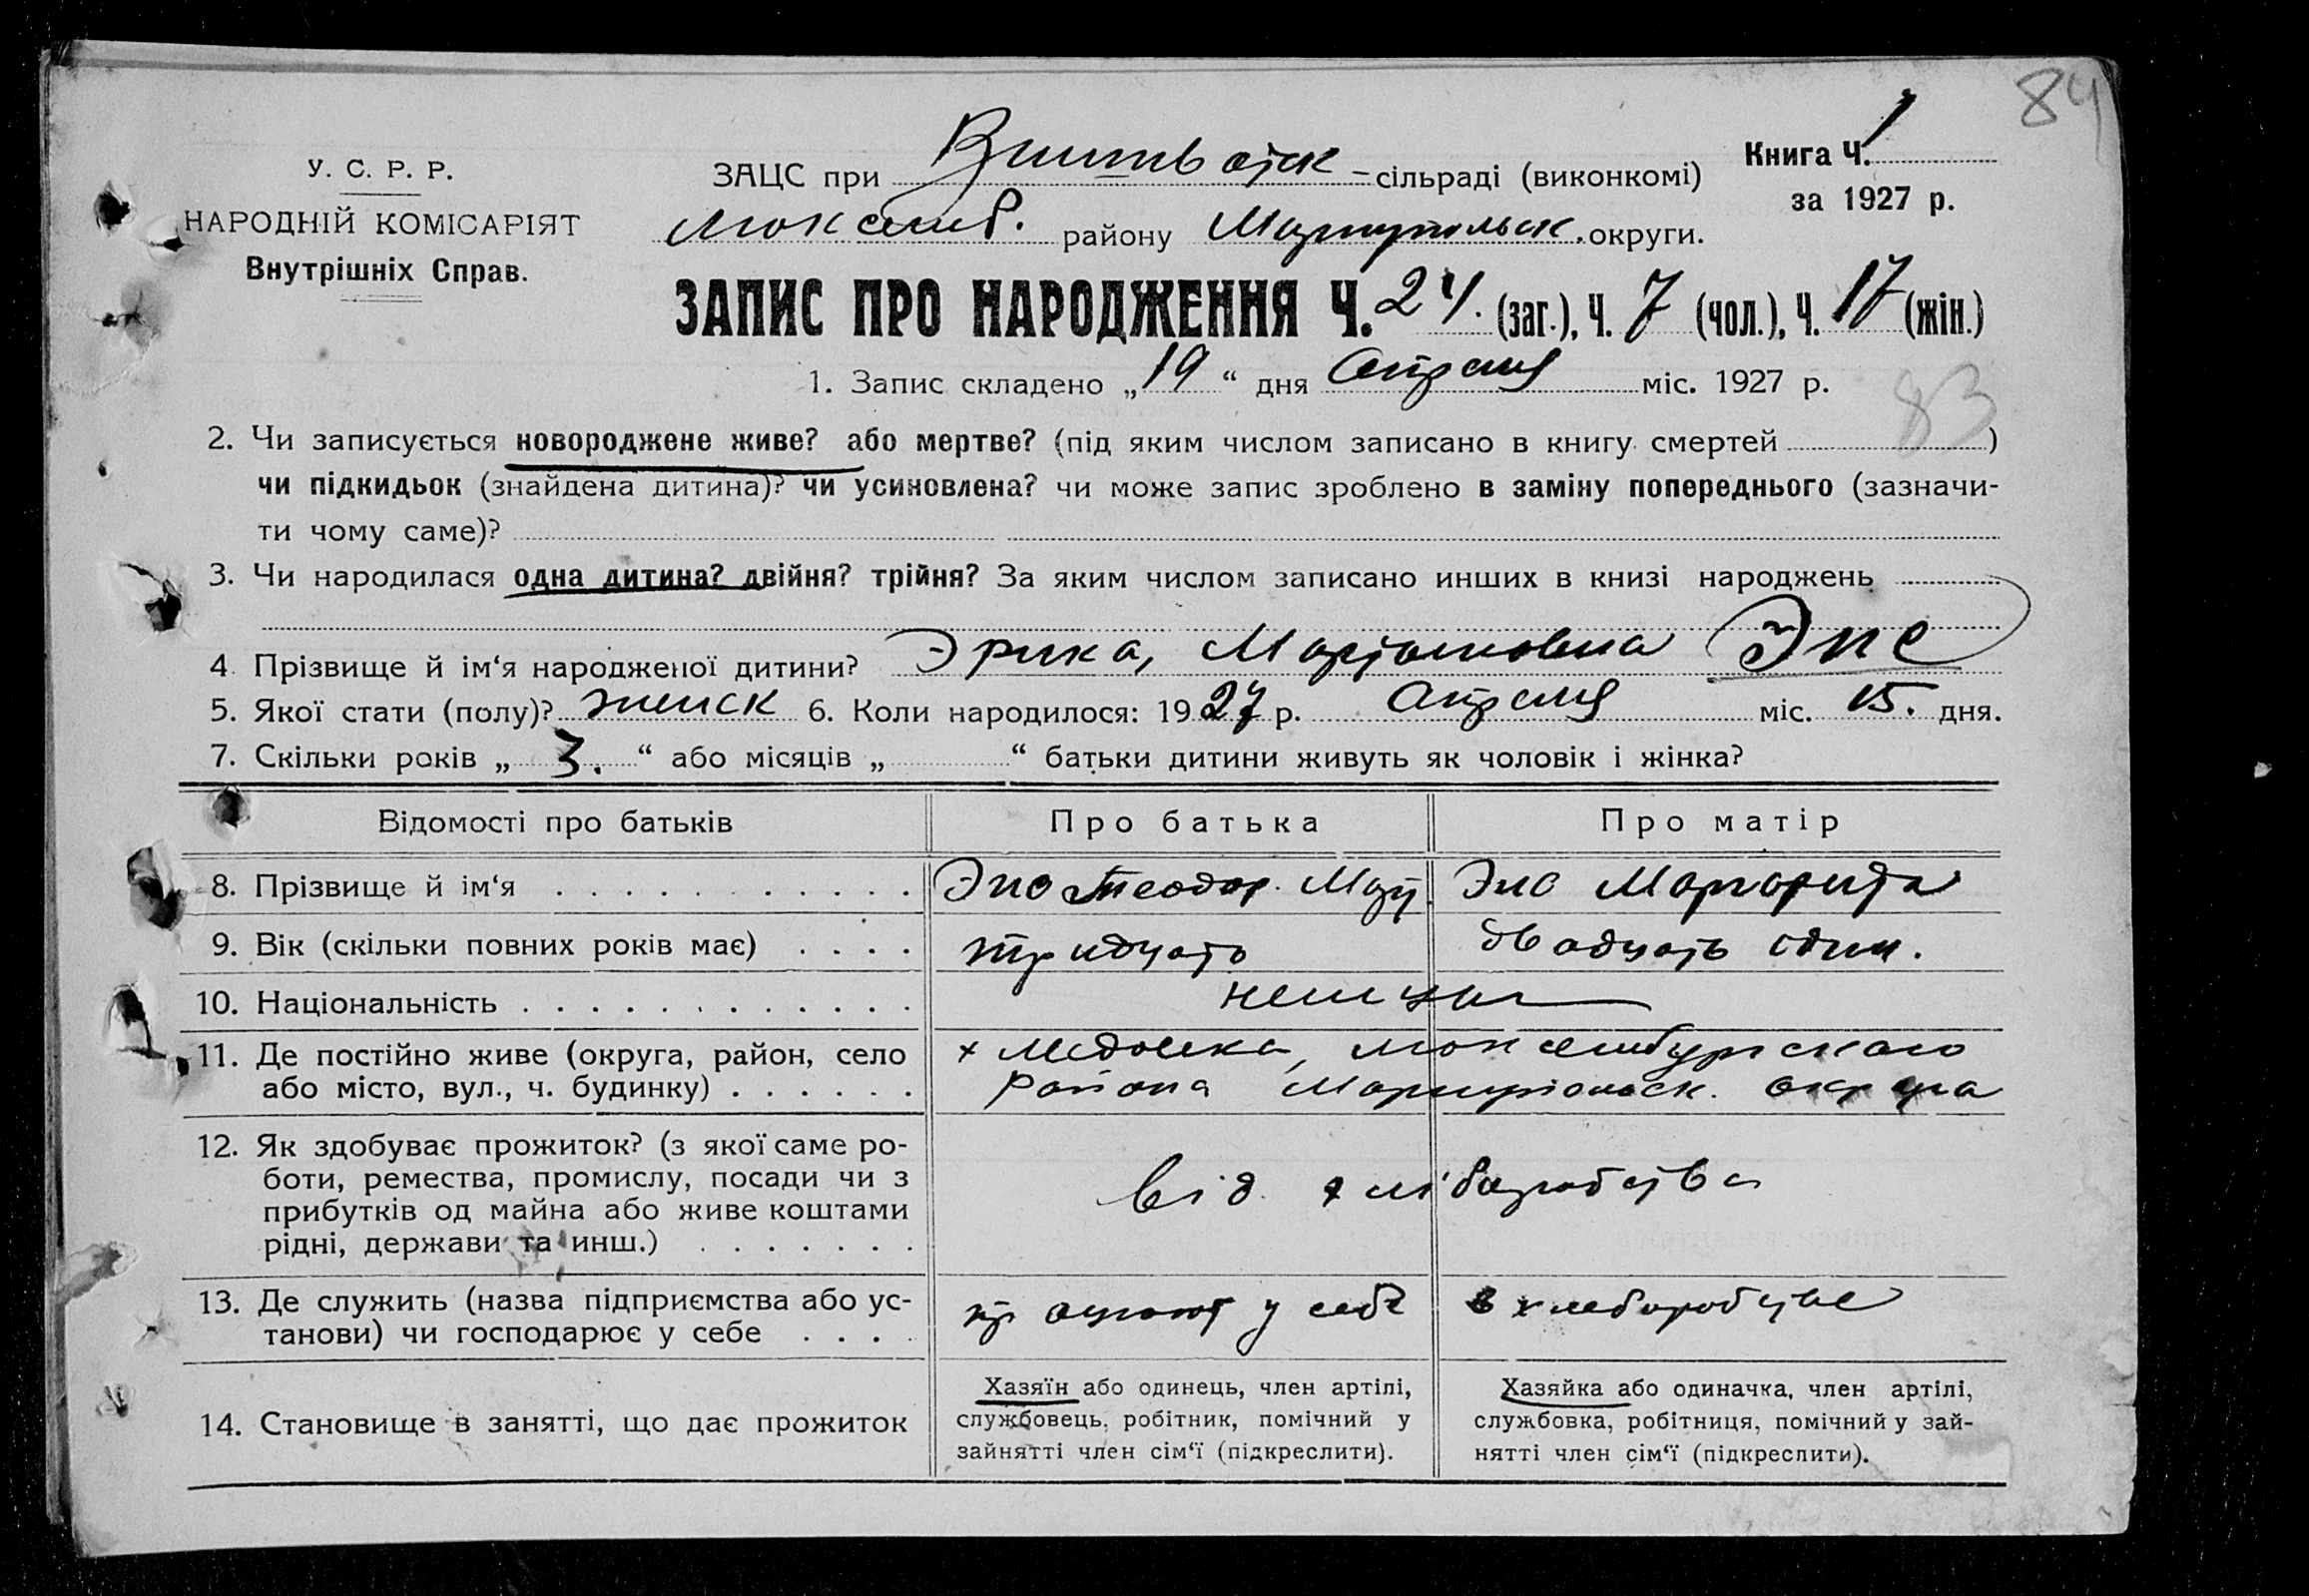 84
У. С. Р. Р.
НАРОДНІЙ КОМІСАРІЯТ
Внутрішніх Справ.
ЗАЦС при - сільраді (виконкомі)
Книга Ч. 1
за 1927 р.
району Мариупольск. округи.
ЗАПИС ПРО НАРОДЖЕННЯ Ч. 24. (заг.), Ч. 7 (чол.), Ч. 17 (жін.)
1. Запис складено „ 19 “ дня Апреля міс. 1927 р.
83
2. Чи записується новороджене живе? або мертве? (під яким числом записано в книгу смертей )
чи підкидьок (знайдена дитина)? чи усиновлена? чи може запис зроблено в заміну попереднього (зазначи-
ти чому саме)?
3. Чи народилася одна дитина? двійня? трійня? За яким числом записано инших в книзі народжень
4. Прізвище й ім‘я народженої дитини? Эрика, Эпс
5. Якої стати (полу)? женск 6. Коли народилося: 1927 р. Апреля міс. 15. дня.
7. Скільки років „ 3. “ або місяців „ “ батьки дитини живуть як чоловік і жінка?
Відомості про батьків Про батька Про матір
8. Прізвище й ім‘я Эпс Теодор. Эпс Маргарита
9. Вік (скільки повних років має) тридцать двадцать один.
10. Національність немцы
11. Де постійно живе (округа, район, село х Медовка, Люксембургского
або місто, вул., ч. будинку) района Мариупольск. округа
12. Як здобуває прожиток? (з якої саме ро-
боти, ремества, промислу, посади чи з від хліборобства
прибутків од майна або живе коштами
рідні, держави та инш.)
13. Де служить (назва підприємства або ус- у себе в хлеборобстве
танови) чи господарює у себе
14. Становище в занятті, що дає прожиток
Хазяїн або одинець, член артілі,
службовець, робітник, помічний у
зайнятті член сім‘ї (підкреслити).
Хазяйка або одиначка, член артілі,
службовка, робітниця, помічний у зай-
нятті член сім‘ї (підкреслити).